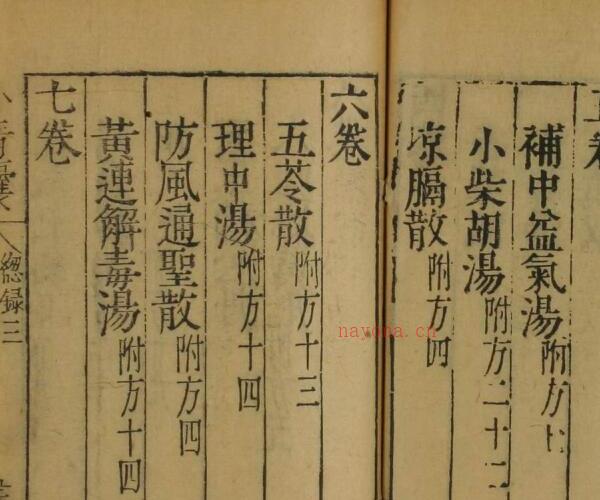 卷
補中益氣湯附方七
小柴胡湯附方二十二
凉膈散附方四
六卷
五苓散附方十三
理中湯附方十四
防風通聖散附方四
黃連解毒湯附方十四
七卷
總錄 三
nayona.cn